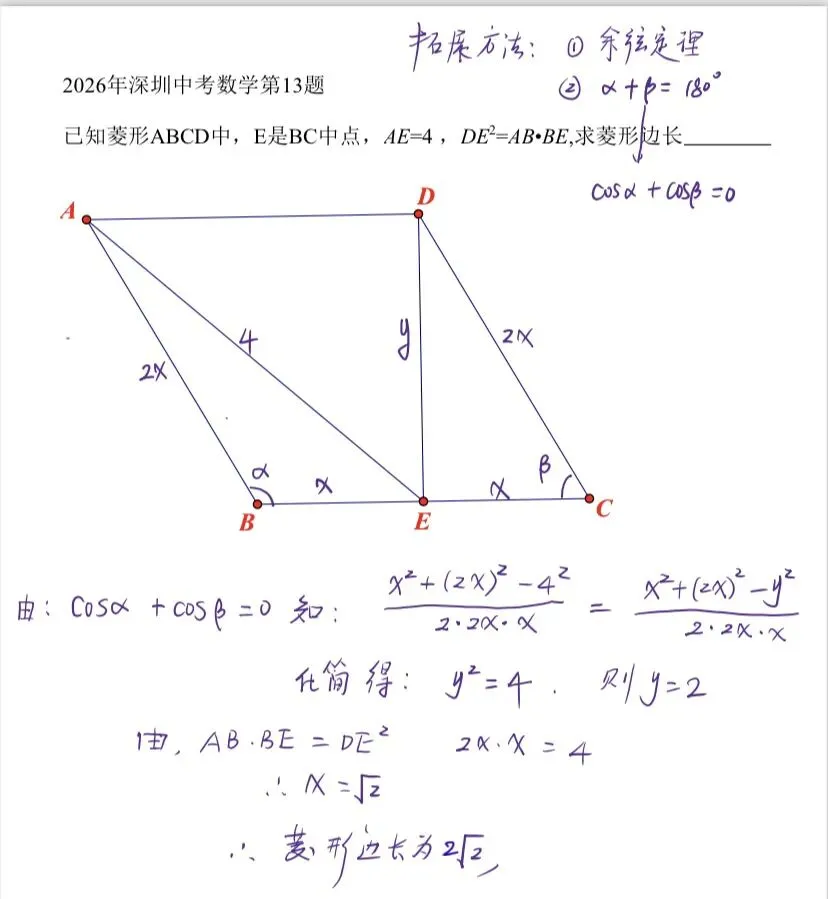 拓展方法: ① 余弦定理
② α+β=180°
2026年深圳中考数学第13题
已知菱形ABCD中，E是BC中点，AE=4，DE²=AB•BE,求菱形边长________
cosα+cosβ=0
A
D
4
y
2x
2x
α
x
x
β
B
E
C
由: cosα+cosβ=0 知: \frac{x²+(2x)²-4²}{2·2x·x} = \frac{x²+(2x)²-y²}{2·2x·x}
化简得: y²=4. 则y=2
由, AB·BE=DE² 2x·x=4
∴ x=√2
∴ 菱形边长为2√2,